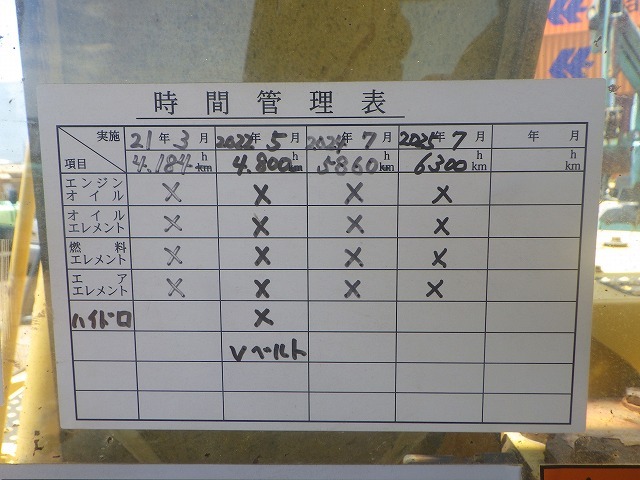 時間管理表
実施 21年 3月 2022年 5月 2024年 7月 2025年 7月 年 月
項目 4.184 h km 4.800 h km 5860 h km 6300 h km h km
エンジンオイル × × × ×
オイルエレメント × × × ×
燃料エレメント × × × ×
エアエレメント × × × ×
ハイドロ ×
Vベルト